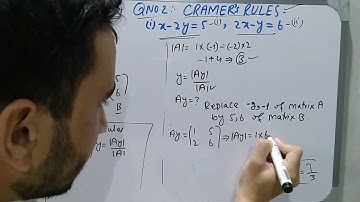 QNO2: CRAMER'S RULES:
(i) x-2y=5-(i), 2x-y=6-(ii)
|A| = 1x(-1) - (-2)x2
-1+4 ⇒ 3
y = |Ay| / |A|
Ay = ? Replace -2,-1 of matrix A
by 5,6 of matrix B
Ay = [1 5
2 6] ⇒ |Ay| = 1x6
5
6
B
|Ay|
|A|
= 7/3